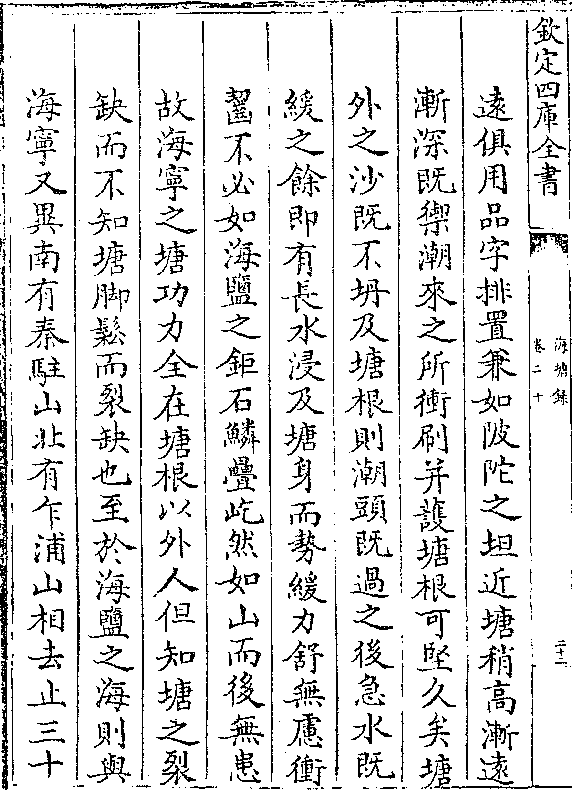 欽定四庫全書
海塘録
卷二十
二十二
遠俱用品字排置兼如陂陀之坦近塘稍高漸遠
漸深既禦潮來之所衝刷并䕶塘根可堅久矣塘
外之沙既不坍及塘根則潮頭既過之後急水既
緩之餘即有長水浸及塘身而勢緩力舒無慮衝
齧不必如海鹽之鉅石鱗疊屹然如山而後無患
故海寧之塘功力全在塘根以外人但知塘之裂
缺而不知塘脚鬆而裂缺也至於海鹽之海則與
海寧又異南有秦駐山北有乍浦山相去止三十